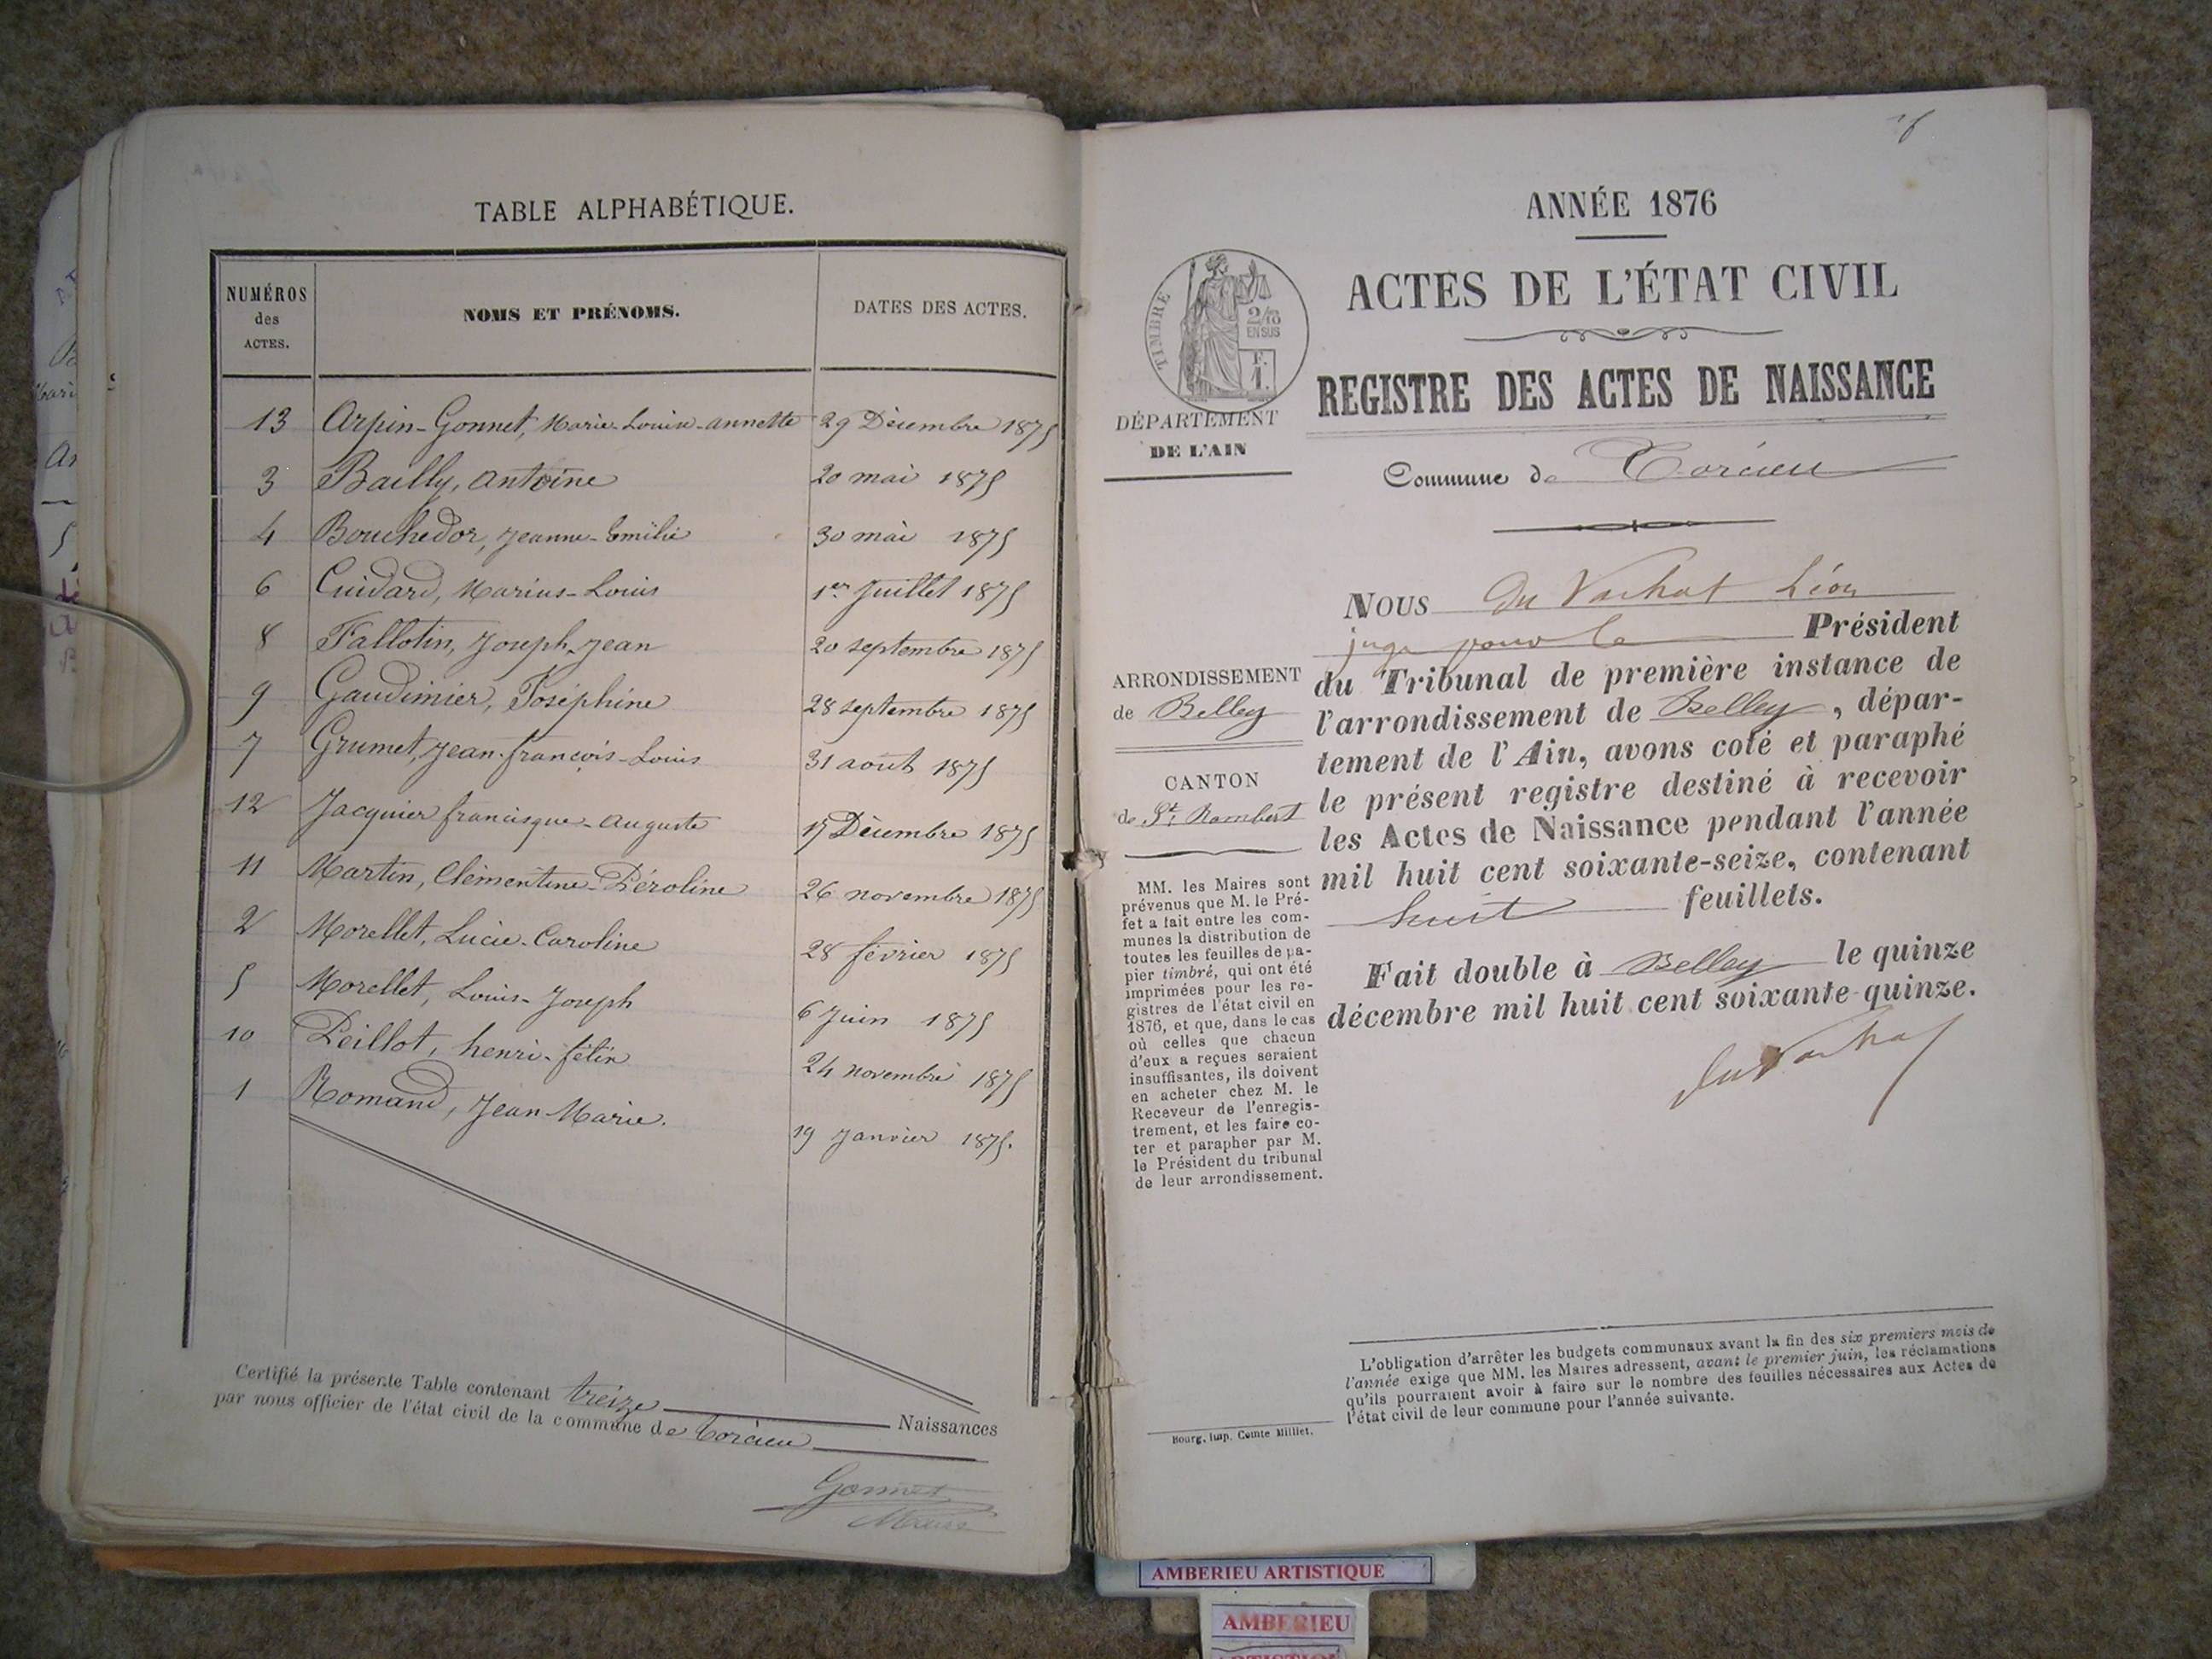 TABLE ALPHABÉTIQUE.
NUMÉROS
des
ACTES.
NOMS ET PRÉNOMS.
DATES DES ACTES.
13 Arpin-Gonnet, Marie-Louise-annette 29 Décembre 1875
3 Bailly, antoine 20 mai 1875
4 Bouchedor, Jeanne-Emélie 30 mai 1875
6 Cuidard, Marius-Louis 1er Juillet 1875
8 Fallotin, Joseph-Jean 20 septembre 1875
9 Gaudimier, Joséphine 28 septembre 1875
7 Grumet, Jean-françois-Louis 31 août 1875
12 Jacquier francisque-auguste 17 Décembre 1875
11 Martin, Clémentine-Péroline 26 novembre 1875
2 Morellet, Lucie-Caroline 28 février 1875
5 Morellet, Louis-Joseph 6 Juin 1875
10 Peillot, henri-félix 24 novembre 1875
1 Romand, Jean-Marie. 19 Janvier 1875.
Certifié la présente Table contenant treize Naissances
par nous officier de l'état civil de la commune de Torcieu
Gonnet
Maire
ANNÉE 1876
TIMBRE
2/10
EN SUS
F.
1.
ACTES DE L'ÉTAT CIVIL
REGISTRE DES ACTES DE NAISSANCE
DÉPARTEMENT
DE L'AIN
Commune de Torcieu
NOUS Du Vachat Léon
juge pour le Président
du Tribunal de première instance de
l'arrondissement de Belley, dépar-
tement de l'Ain, avons coté et paraphé
le présent registre destiné à recevoir
les Actes de Naissance pendant l'année
mil huit cent soixante-seize, contenant
huit feuillets.
Fait double à Belley le quinze
décembre mil huit cent soixante-quinze.
Du Vachat
ARRONDISSEMENT
de Belley
CANTON
de St. Rambert
MM. les Maires sont
prévenus que M. le Pré-
fet a fait entre les com-
munes la distribution de
toutes les feuilles de pa-
pier timbré, qui ont été
imprimées pour les re-
gistres de l'état civil en
1876, et que, dans le cas
où celles que chacun
d'eux a reçues seraient
insuffisantes, ils doivent
en acheter chez M. le
Receveur de l'enregis-
trement, et les faire co-
ter et parapher par M.
le Président du tribunal
de leur arrondissement.
L'obligation d'arrêter les budgets communaux avant la fin des six premiers mois de
l'année exige que MM. les Maires adressent, avant le premier juin, les réclamations
qu'ils pourraient avoir à faire sur le nombre des feuilles nécessaires aux Actes de
l'état civil de leur commune pour l'année suivante.
Bourg, imp. Comte Milliet.
AMBERIEU ARTISTIQUE
AMBERIEU
ARTISTIQUE